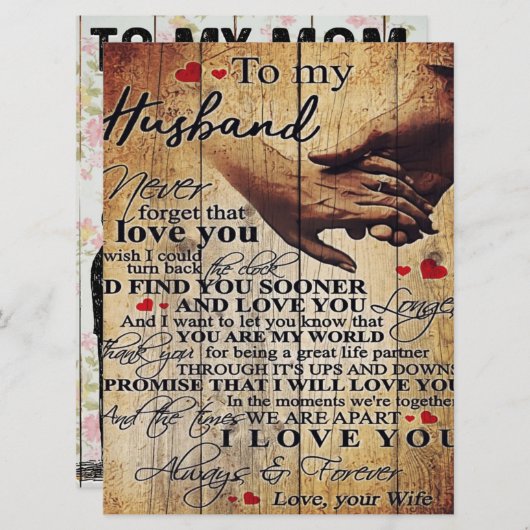 TO MY MOM
To my
Husband
Never
forget that
love you
wish I could
turn back the clock
D FIND YOU SOONER
AND LOVE YOU Longe
And I want to let you know that
YOU ARE MY WORLD
thank you for being a great life partner
THROUGH IT'S UPS AND DOWNS
PROMISE THAT I WILL LOVE YOU
In the moments we're together
And the times WE ARE APART
I LOVE YOU
Always & Forever
Love, your Wife